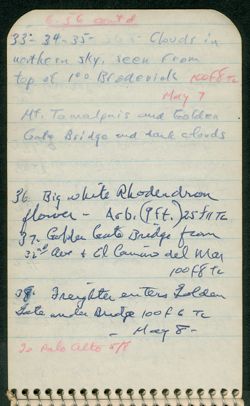 6-56 cont'd
33- 34-35- Clouds in
northern sky, seen from
top of 100 Broderick 100 F8 Tc
May 7
Mt. Tamalpais and Golden
Gate Bridge and dark clouds
36. Big white Rhodendron
flower - Arb. (9 ft.) 25 f11 Tc
37. Golden Gate Bridge from
32nd Ave + El Camino del Mar
100 F8 Tc
38. Freighter enters Golden
Gate under Bridge 100 F 6 Tc
- May 8 -
To Palo Alto 5/8